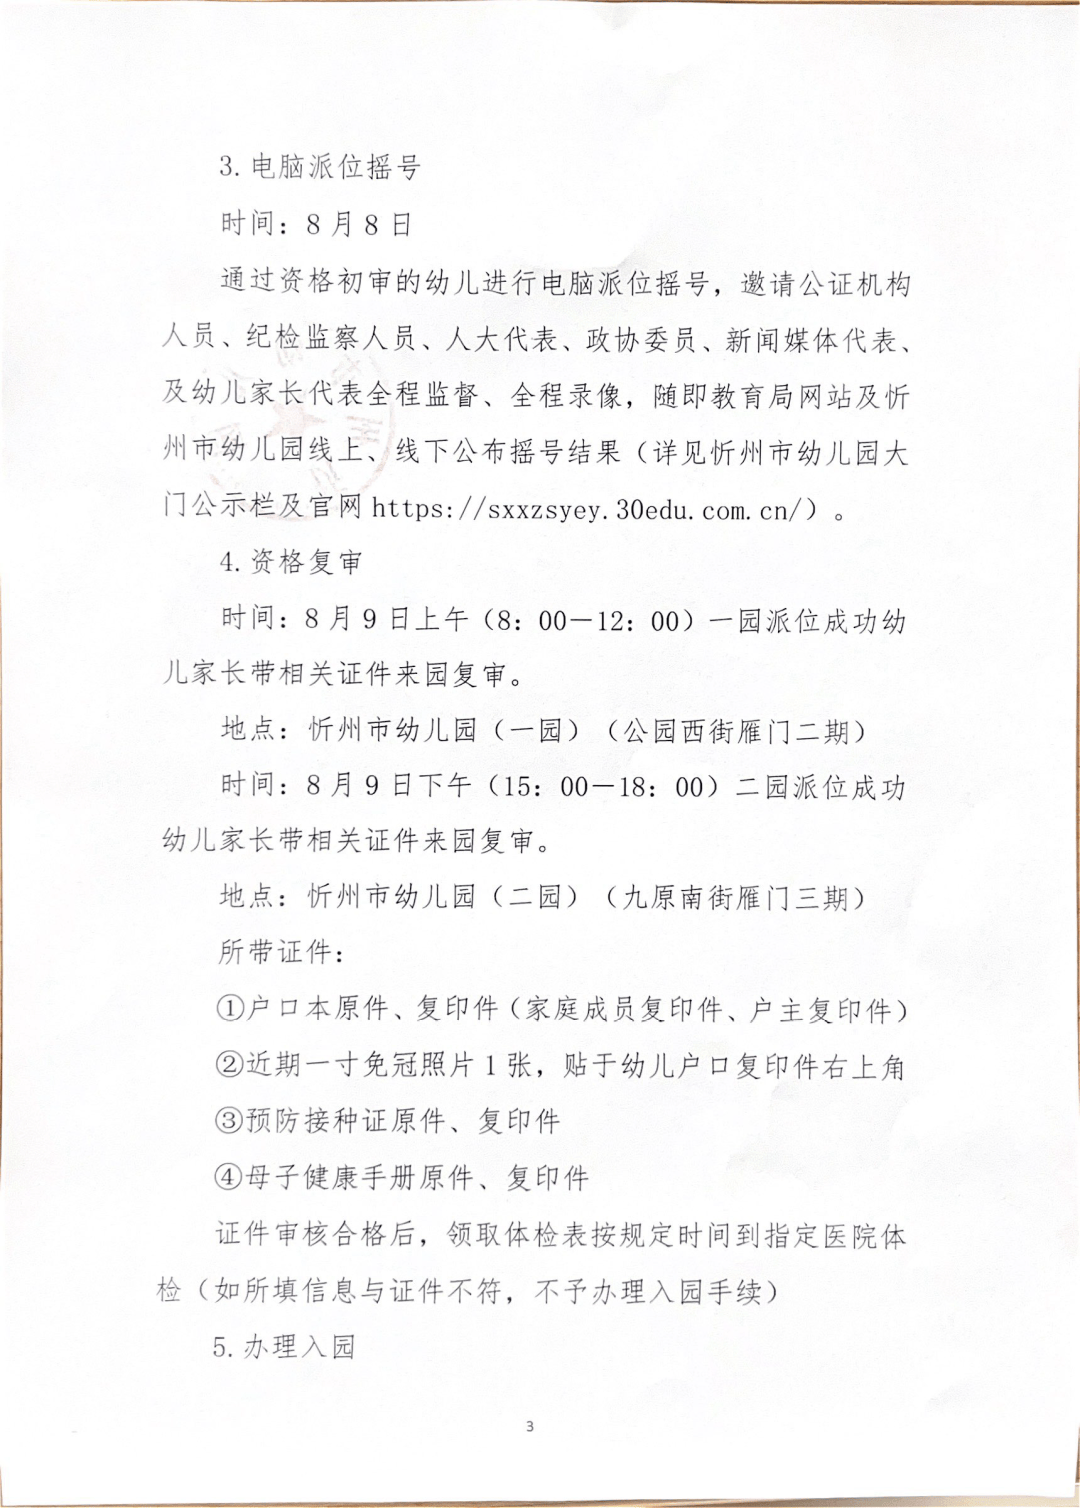 3.电脑派位摇号
时间：8月8日
通过资格初审的幼儿进行电脑派位摇号，邀请公证机构
人员、纪检监察人员、人大代表、政协委员、新闻媒体代表、
及幼儿家长代表全程监督、全程录像，随即教育局网站及忻
州市幼儿园线上、线下公布摇号结果（详见忻州市幼儿园大
门公示栏及官网https://sxxzsyey.30edu.com.cn/）。
4.资格复审
时间：8月9日上午（8：00－12：00）一园派位成功幼
儿家长带相关证件来园复审。
地点：忻州市幼儿园（一园）（公园西街雁门二期）
时间：8月9日下午（15：00－18：00）二园派位成功
幼儿家长带相关证件来园复审。
地点：忻州市幼儿园（二园）（九原南街雁门三期）
所带证件：
①户口本原件、复印件（家庭成员复印件、户主复印件）
②近期一寸免冠照片1张，贴于幼儿户口复印件右上角
③预防接种证原件、复印件
④母子健康手册原件、复印件
证件审核合格后，领取体检表按规定时间到指定医院体
检（如所填信息与证件不符，不予办理入园手续）
5.办理入园
3